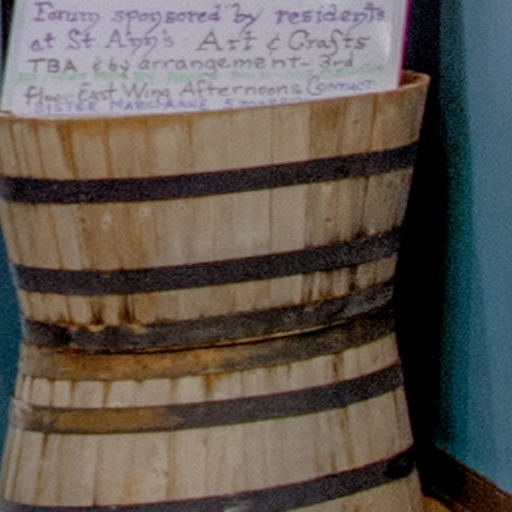 Forum sponsored by residents
at St Ann's. Art & Crafts
TBA & by arrangement - 3rd
floor East Wing Afternoons Contact
SISTER MARGIANNE